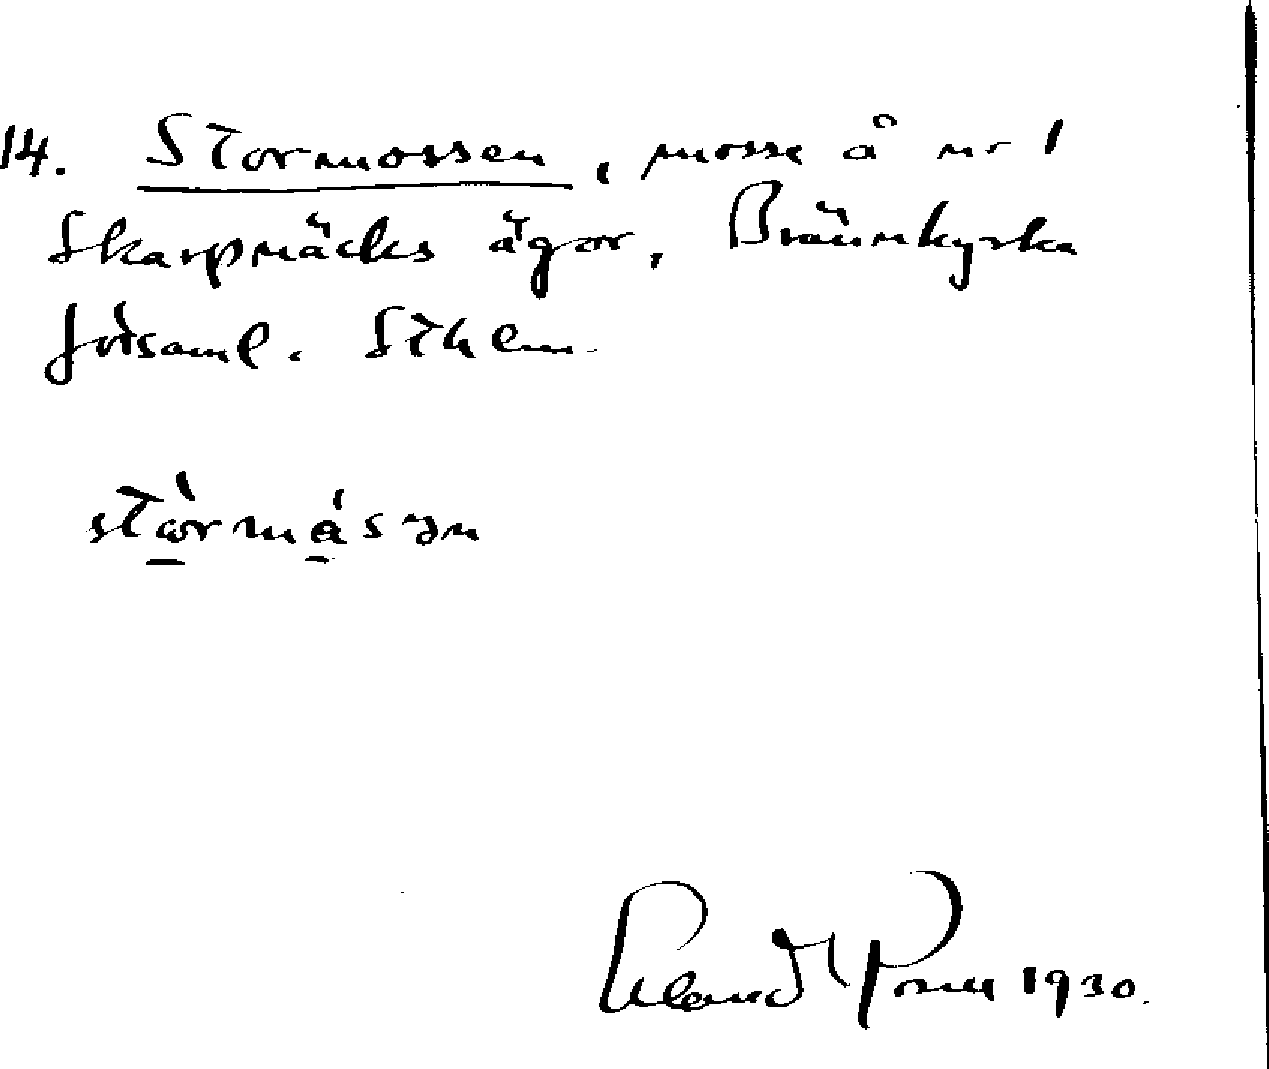 14. Stormossen, mosse å nr 1
Skarpnäcks ägor, Brännkyrka
församl. Sthlm.
stòrmåsən
1930.